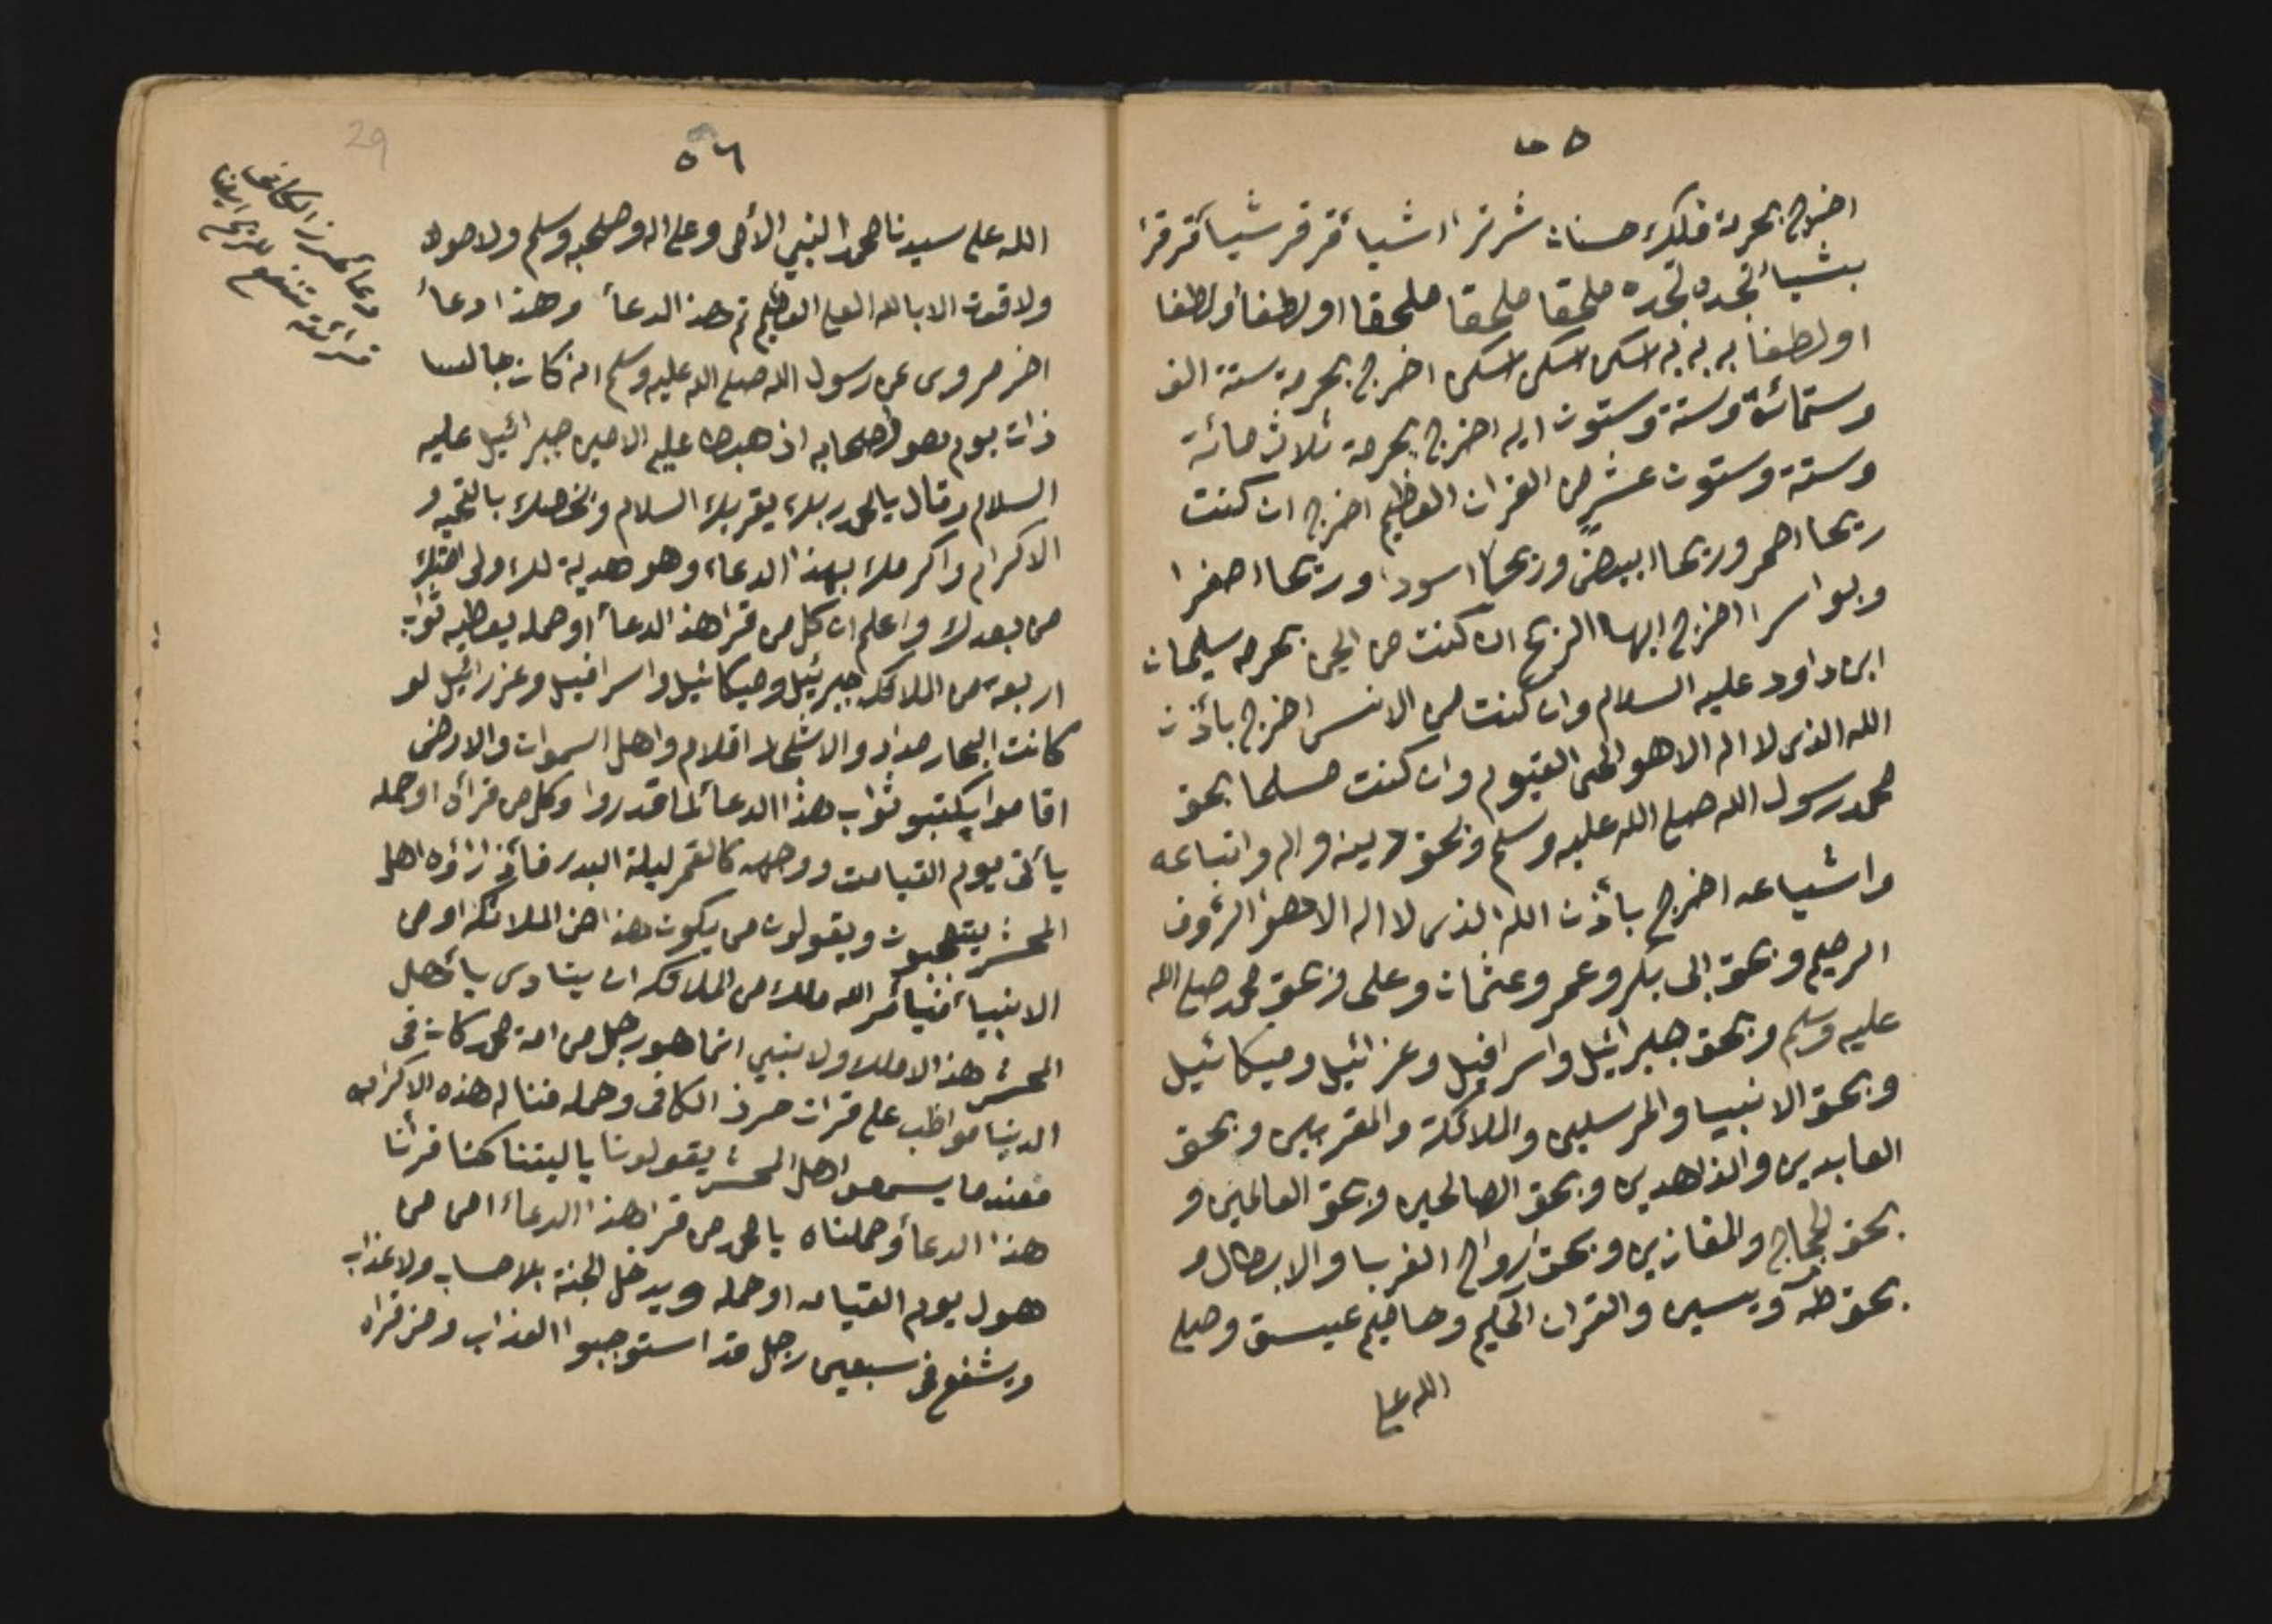 ٥٥
اخرج بحرمة فلك حسنات شرنر اشيا قرقر شيا قرقر
بشيا نجده نجده ملحقا ملحقا ملحقا اولطفا ولطفا
اولطفا به به به اسكن اسكن اسكن اخرج بحرمة ستة الف
وستمائة وستة وستون ايه اخرج بحرمة ثلاث مائة
وستة وستون عشر من القران العظيم اخرج ان كنت
ريحا احمر وريحا ابيض وريحا اسود وريحا اصفرا
وبواسرا اخرج ايها الريح ان كنت من الجن بحرمه سليمان
ابن داود عليه السلام وان كنت من الانس اخرج بأذن
الله الذى لا اله الا هو الحى القيوم وان كنت مسلما بحق
محمد رسول الله صلى الله عليه وسلم وبحق دينه واله واتباعه
واشياعه اخرج بأذن الله الذى لا اله الا هو الرؤف
الرحيم وبحق ابى بكر وعمر وعثمان وعلى وبحق محمد صلى الله
عليه وسلم وبحق جبرائيل واسرافيل وعزائيل وميكائيل
وبحق الانبيا والمرسلين والملائكة والمقربين وبحق
العابدين والذاهدين وبحق الصالحين وبحق العالمين و
بحق الحجاج والمغازين وبحق ارواح الغربا والابطال و
بحق طه ويسين والقران الحكيم وحاميم عيسق وصلى
الله على
٥٦
29
دعأ حرز الكافى
قرائته تنفع للريح ايضا
الله على سيدنا محمد النبي الأمى وعلى اله وصحبه وسلم ولا حول
ولا قوت الا بالله العلى العظيم تم هذ الدعأ وهذا دعأ
اخر مروى عن رسول الله صلى الله عليه وسلم انه كان جالسا
ذات يوم هو واصحابه اذ هبط عليه الامين جبرائيل عليه
السلام وقال يا محمد ربك يقربك السلام ونخصك بالتحيه و
الاكرام واكرمك بهذا الدعاء وهو هدية لك ولى امتك
من بعدك واعلم ان كل من قرا هذ الدعأ او حمله يعطيه ثواب
اربعه من الملائكه جبرئيل وميكائيل واسرافيل وعزرائيل لو
كانت البحار مداد والاشجار اقلام واهل السموات والارض
اقاموا يكتبو ثواب هذا الدعأ لما قدروا وكل من قرأه او حمله
يأتى يوم القيامت ووجهه كالقمر ليلة البدر فأذا رؤه اهل
المحشر يتعجبون ويقولون من يكون هذا من الملائكه او من
الانبيأ فيأمر الله ملك من الملائكه ان ينادى يا أهل
المحشر هذ الا ملك ولا نبي انما هو رجل من امة محمد كان فى
الدنيا مواظب على قرات حرز الكافى وحمله فناله هذه الاكرامه
فعند ما يسمعوا اهل المحشر يقولون يا ليتنا كنا قرأنا
هذا الدعأ وحملناه يا محمد من قرا هذا الدعأ امن من
هول يوم القيامه او حمله ويدخل الجنة بلا حساب ولا عذاب
ويشفع فى سبعين رجل قد استوجبوا العذاب ومن قراه